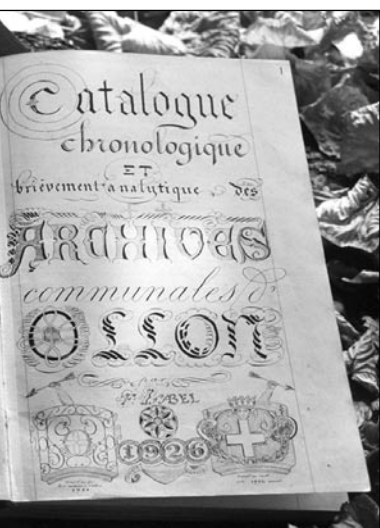 1
Catalogue
chronologique
ET
brièvement analytique des
ARCHIVES
communales d'
OLLON
par
F. ISABEL
1926